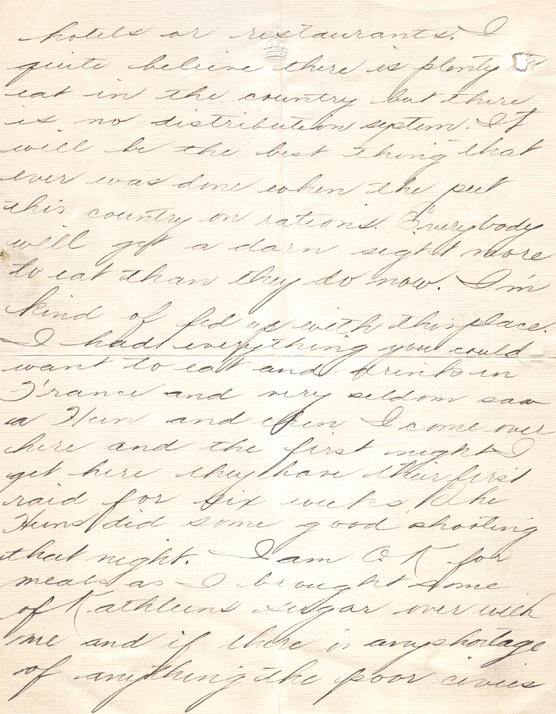 hotels or restaurants. I
quite believe there is plenty to
eat in the country but there
is no distribution system. It
will be the best thing that
ever was done when the put
this country on rations. Everybody
will get a darn sight more
to eat than they do now. I'm
kind of fed up with this place.
I had everything you could
want to eat and drink in
France and very seldom saw
a Hun and then I come over
here and the first night I
get here they have their first
raid for six weeks. The
Huns did some good shooting
that night. I am O.K. for
meals as I brought some
of Kathleens sugar over with
me and if there is any shortage
of anything the poor civies